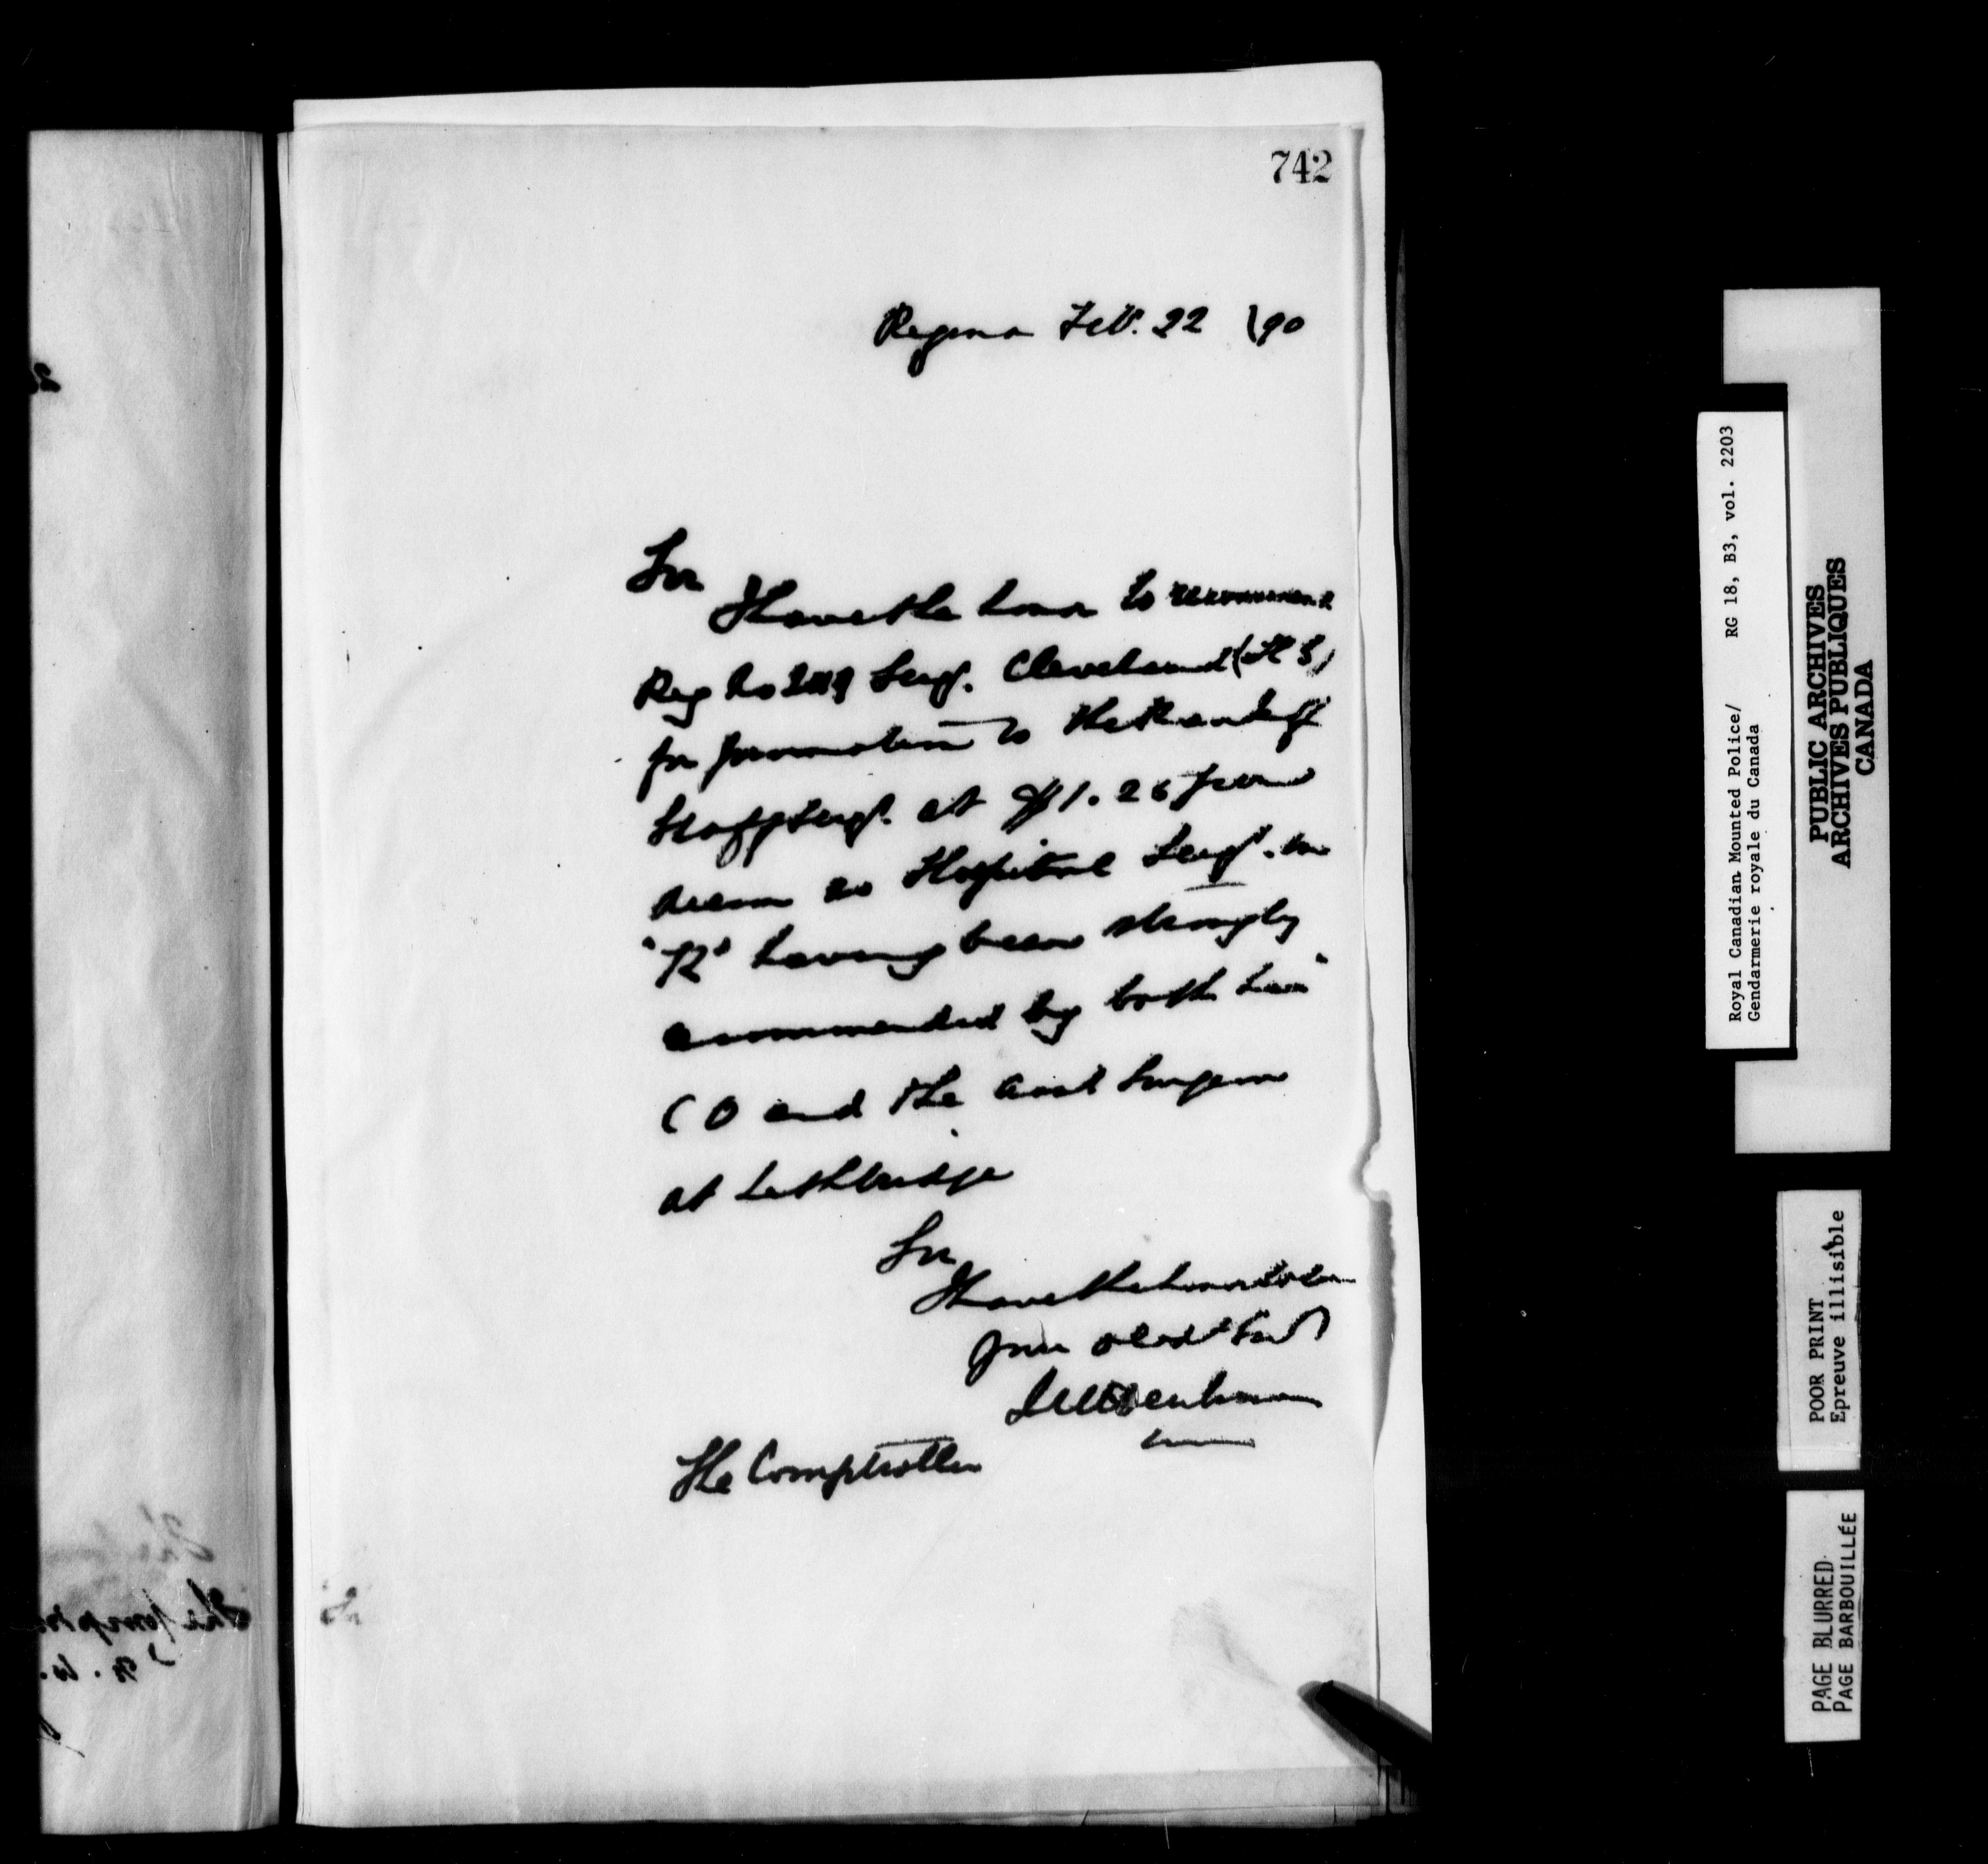 742
Regina Feb. 22 \90
Sir
I have the honor to recommend
Reg No Sergt. Cleveland (H S)
for promotion to the rank of
Staff Sergt. at $1. 25 per
diem as Hospital Sergt. in
"K" having been strongly
recommended by both his
C O and the Asst Surgeon
at Lethbridge
Sir
I have the honor to be
Your obedt Servt
The Comptroller
Royal Canadian Mounted Police/ RG 18, B3, vol. 2203
Gendarmerie royale du Canada
PUBLIC ARCHIVES
ARCHIVES PUBLIQUES
CANADA
POOR PRINT
Epreuve illisible
PAGE BLURRED
PAGE BARBOUILLÉE